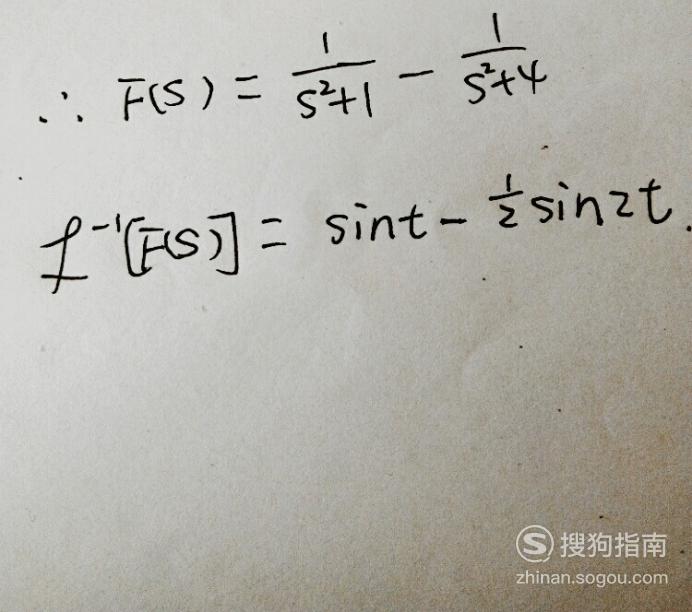 ∴ F(S) = 1/(S²+1) − 1/(S²+4)
ℒ⁻¹[F(S)] = sint − 1/2 sin2t.
S 搜狗指南
zhinan.sogou.com